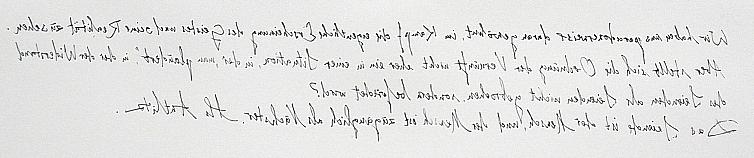 Wir haben uns paradoxerweise daran gewöhnt, im Kampf die eigentliche Erscheinung des Geistes und seine Realität zu sehen.
Aber stellt sich die Ordnung der Vernunft nicht eher ein in einer Situation, in der man „plaudert“, in der der Widerstand
des Seienden als Seienden nicht gebrochen, sondern befriedet wird?
Das Seiende ist der Mensch, und der Mensch ist zugänglich als Nächster. Als Antlitz.